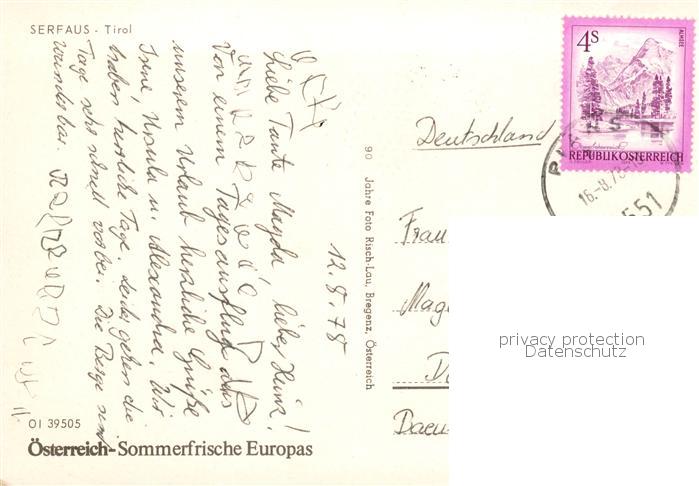 SERFAUS - Tirol
12.8.78
Liebe Tante Magda, lieber Heinz!
Von einem Tagesausflug aus
unserem Urlaub herzliche Grüße
Irmi, Ursula u. Alexandra. Wir
haben herrliche Tage. Leider gehen die
Tage sehr schnell vorbei. Die Berge sind
wunderbar.
OI 39505
Österreich-Sommerfrische Europas
90 Jahre Foto Risch-Lau, Bregenz, Österreich
4S
ALMSEE
REPUBLIK ÖSTERREICH
16.-8.78
6551
Deutschland
Frau
Mag
D
Daeu
privacy protection
Datenschutz